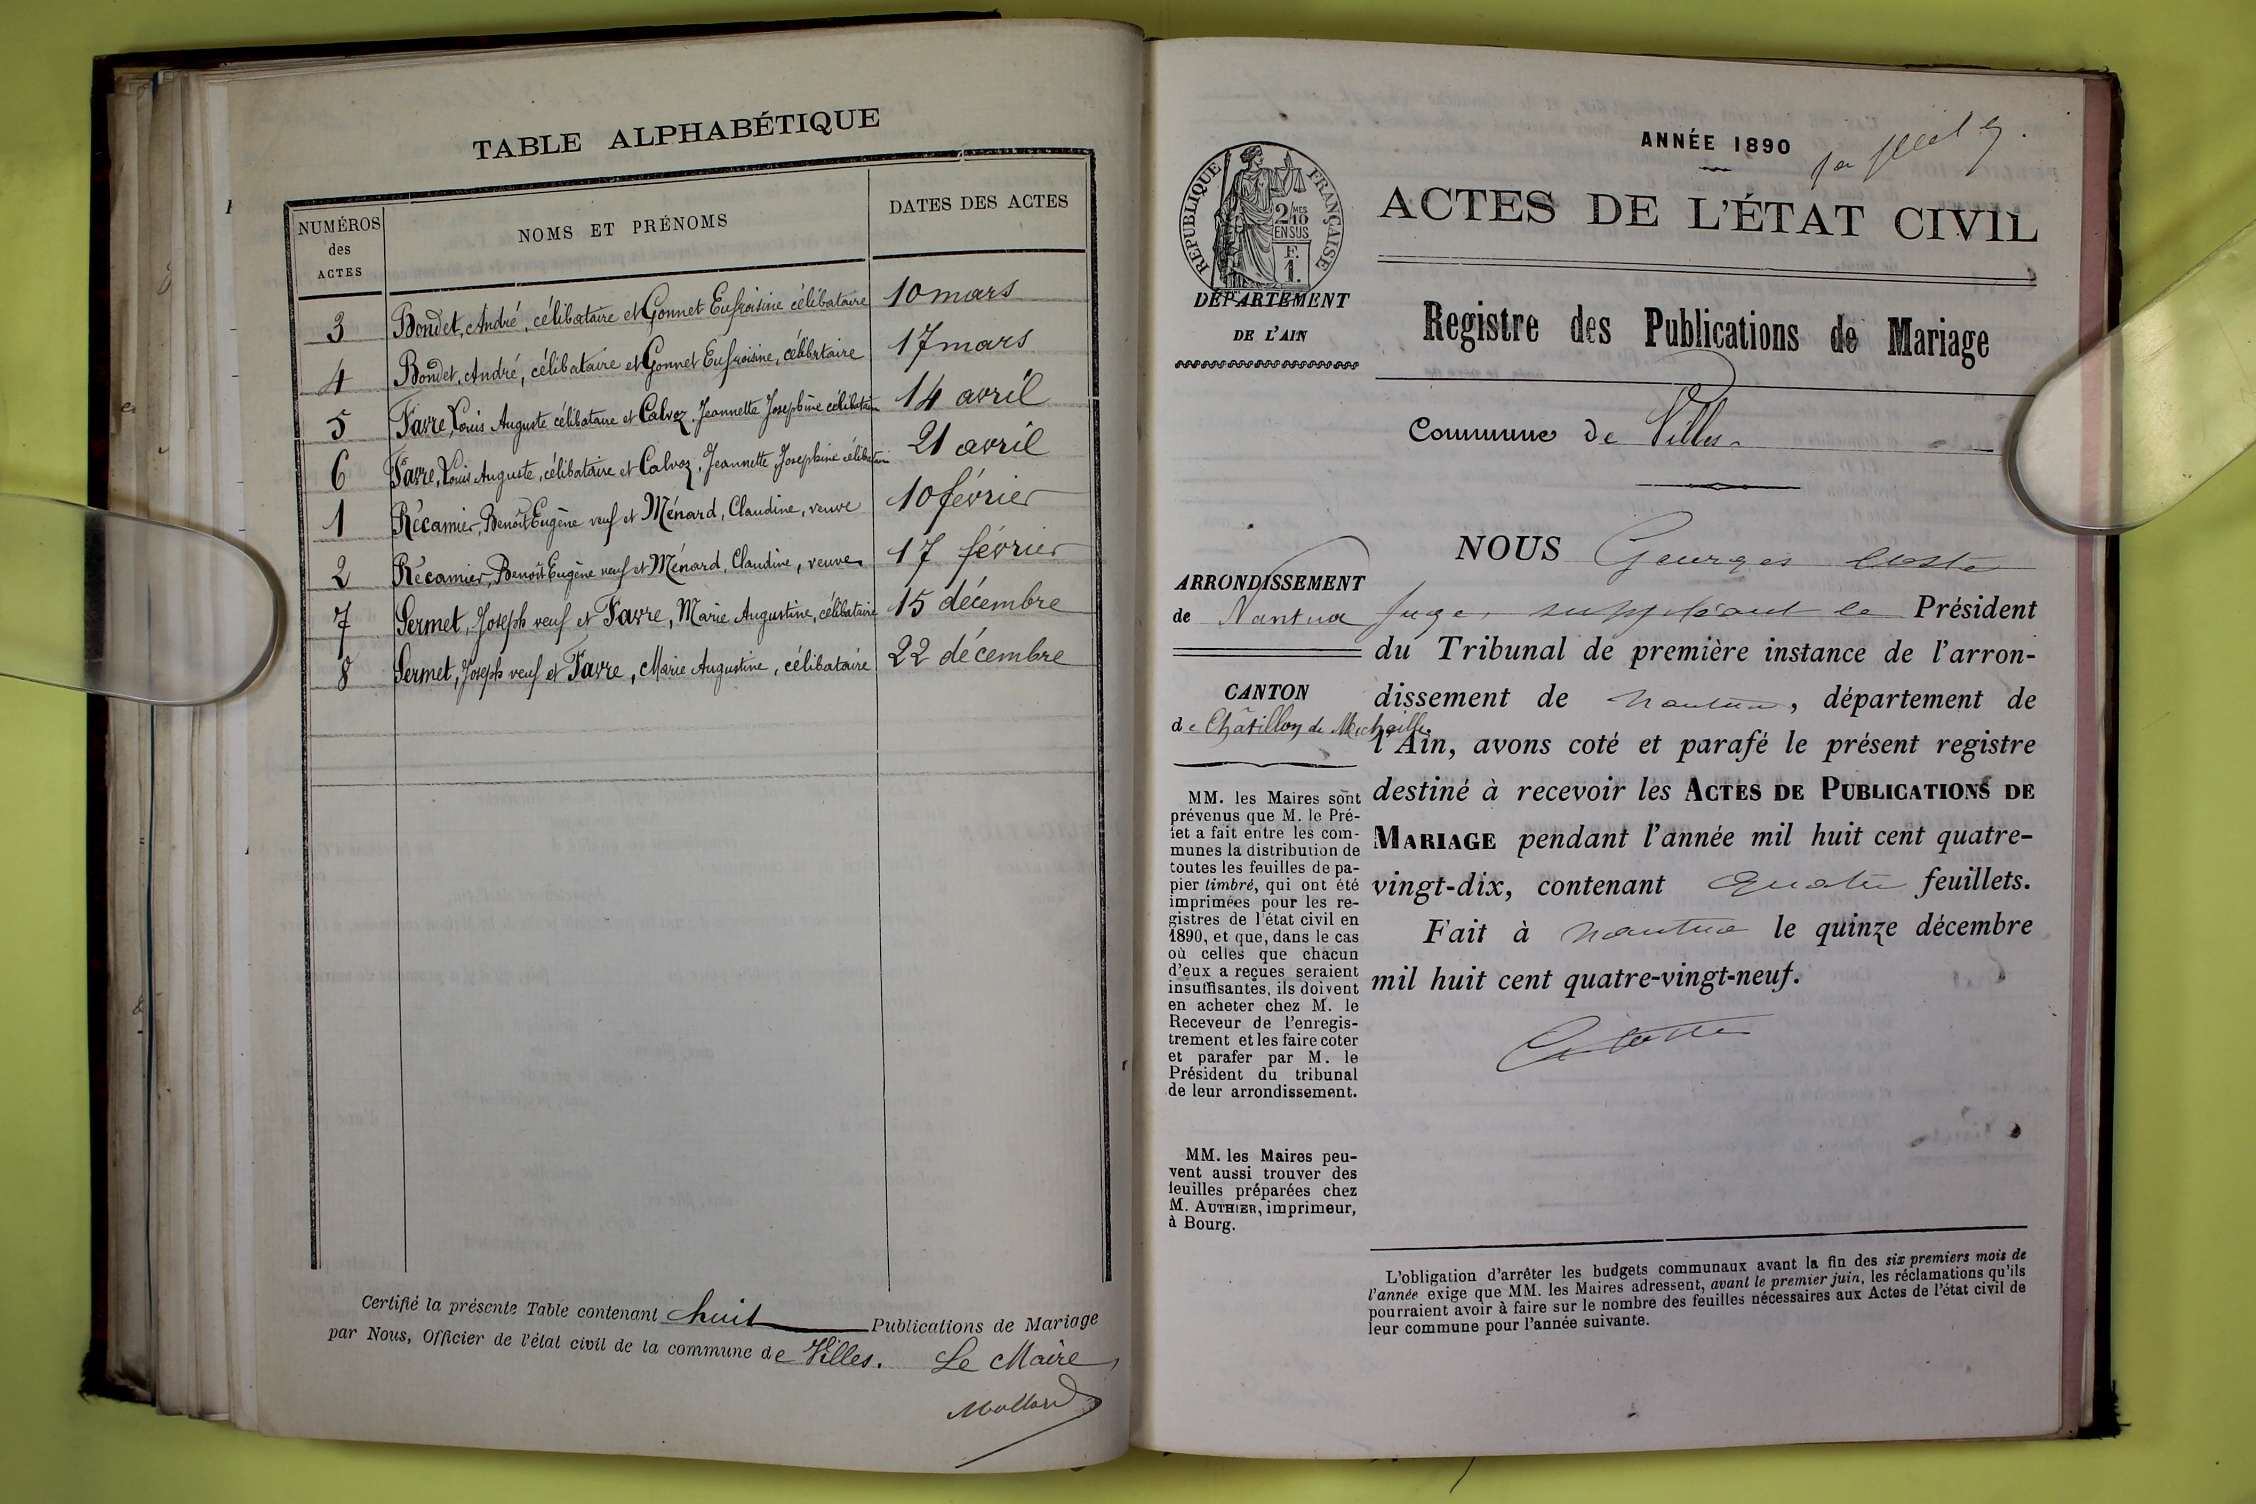 TABLE ALPHABÉTIQUE
NUMÉROS des ACTES
NOMS ET PRÉNOMS
DATES DES ACTES
3 Bondet, André, célibataire et Gonnet Eufroisine célibataire 10 mars
4 Bondet, André, célibataire et Gonnet Eufroisine, célibataire 17 mars
5 Favre, Louis Auguste célibataire et Calvoz Jeannette Joséphine célibataire 14 avril
6 Favre, Louis Auguste, célibataire et Calvoz, Jeannette Joséphine célibataire 21 avril
1 Récamier, Benoît Eugène veuf et Ménard, Claudine, veuve 10 février
2 Récamier, Benoît Eugène veuf et Ménard, Claudine, veuve 17 février
7 Sermet, Joseph veuf et Favre, Marie Augustine, célibataire 15 décembre
8 Sermet, Joseph veuf et Favre, Marie Augustine, célibataire 22 décembre
Certifié la présente Table contenant huit Publications de Mariage
par Nous, Officier de l'état civil de la commune de Villes. Le Maire,
Mollard
ANNÉE 1890
RÉPUBLIQUE FRANÇAISE
2/10MES
EN SUS
F.
1.
ACTES DE L'ÉTAT CIVIL
DÉPARTEMENT
DE L'AIN
Registre des Publications de Mariage
Commune de Villes
ARRONDISSEMENT
de Nantua
CANTON
de Châtillon de Michaille.
MM. les Maires sont
prévenus que M. le Pré-
fet a fait entre les com-
munes la distribution de
toutes les feuilles de pa-
pier timbré, qui ont été
imprimées pour les re-
gistres de l'état civil en
1890, et que, dans le cas
où celles que chacun
d'eux a reçues seraient
insuffisantes, ils doivent
en acheter chez M. le
Receveur de l'enregis-
trement et les faire coter
et parafer par M. le
Président du tribunal
de leur arrondissement.
MM. les Maires peu-
vent aussi trouver des
feuilles préparées chez
M. AUTHIER, imprimeur,
à Bourg.
NOUS Georges Coste
Juge, suppléant le Président
du Tribunal de première instance de l'arron-
dissement de Nantua, département de
l'Ain, avons coté et parafé le présent registre
destiné à recevoir les ACTES DE PUBLICATIONS DE
MARIAGE pendant l'année mil huit cent quatre-
vingt-dix, contenant quatre feuillets.
Fait à Nantua le quinze décembre
mil huit cent quatre-vingt-neuf.
L'obligation d'arrêter les budgets communaux avant la fin des six premiers mois de
l'année exige que MM. les Maires adressent, avant le premier juin, les réclamations qu'ils
pourraient avoir à faire sur le nombre des feuilles nécessaires aux Actes de l'état civil de
leur commune pour l'année suivante.